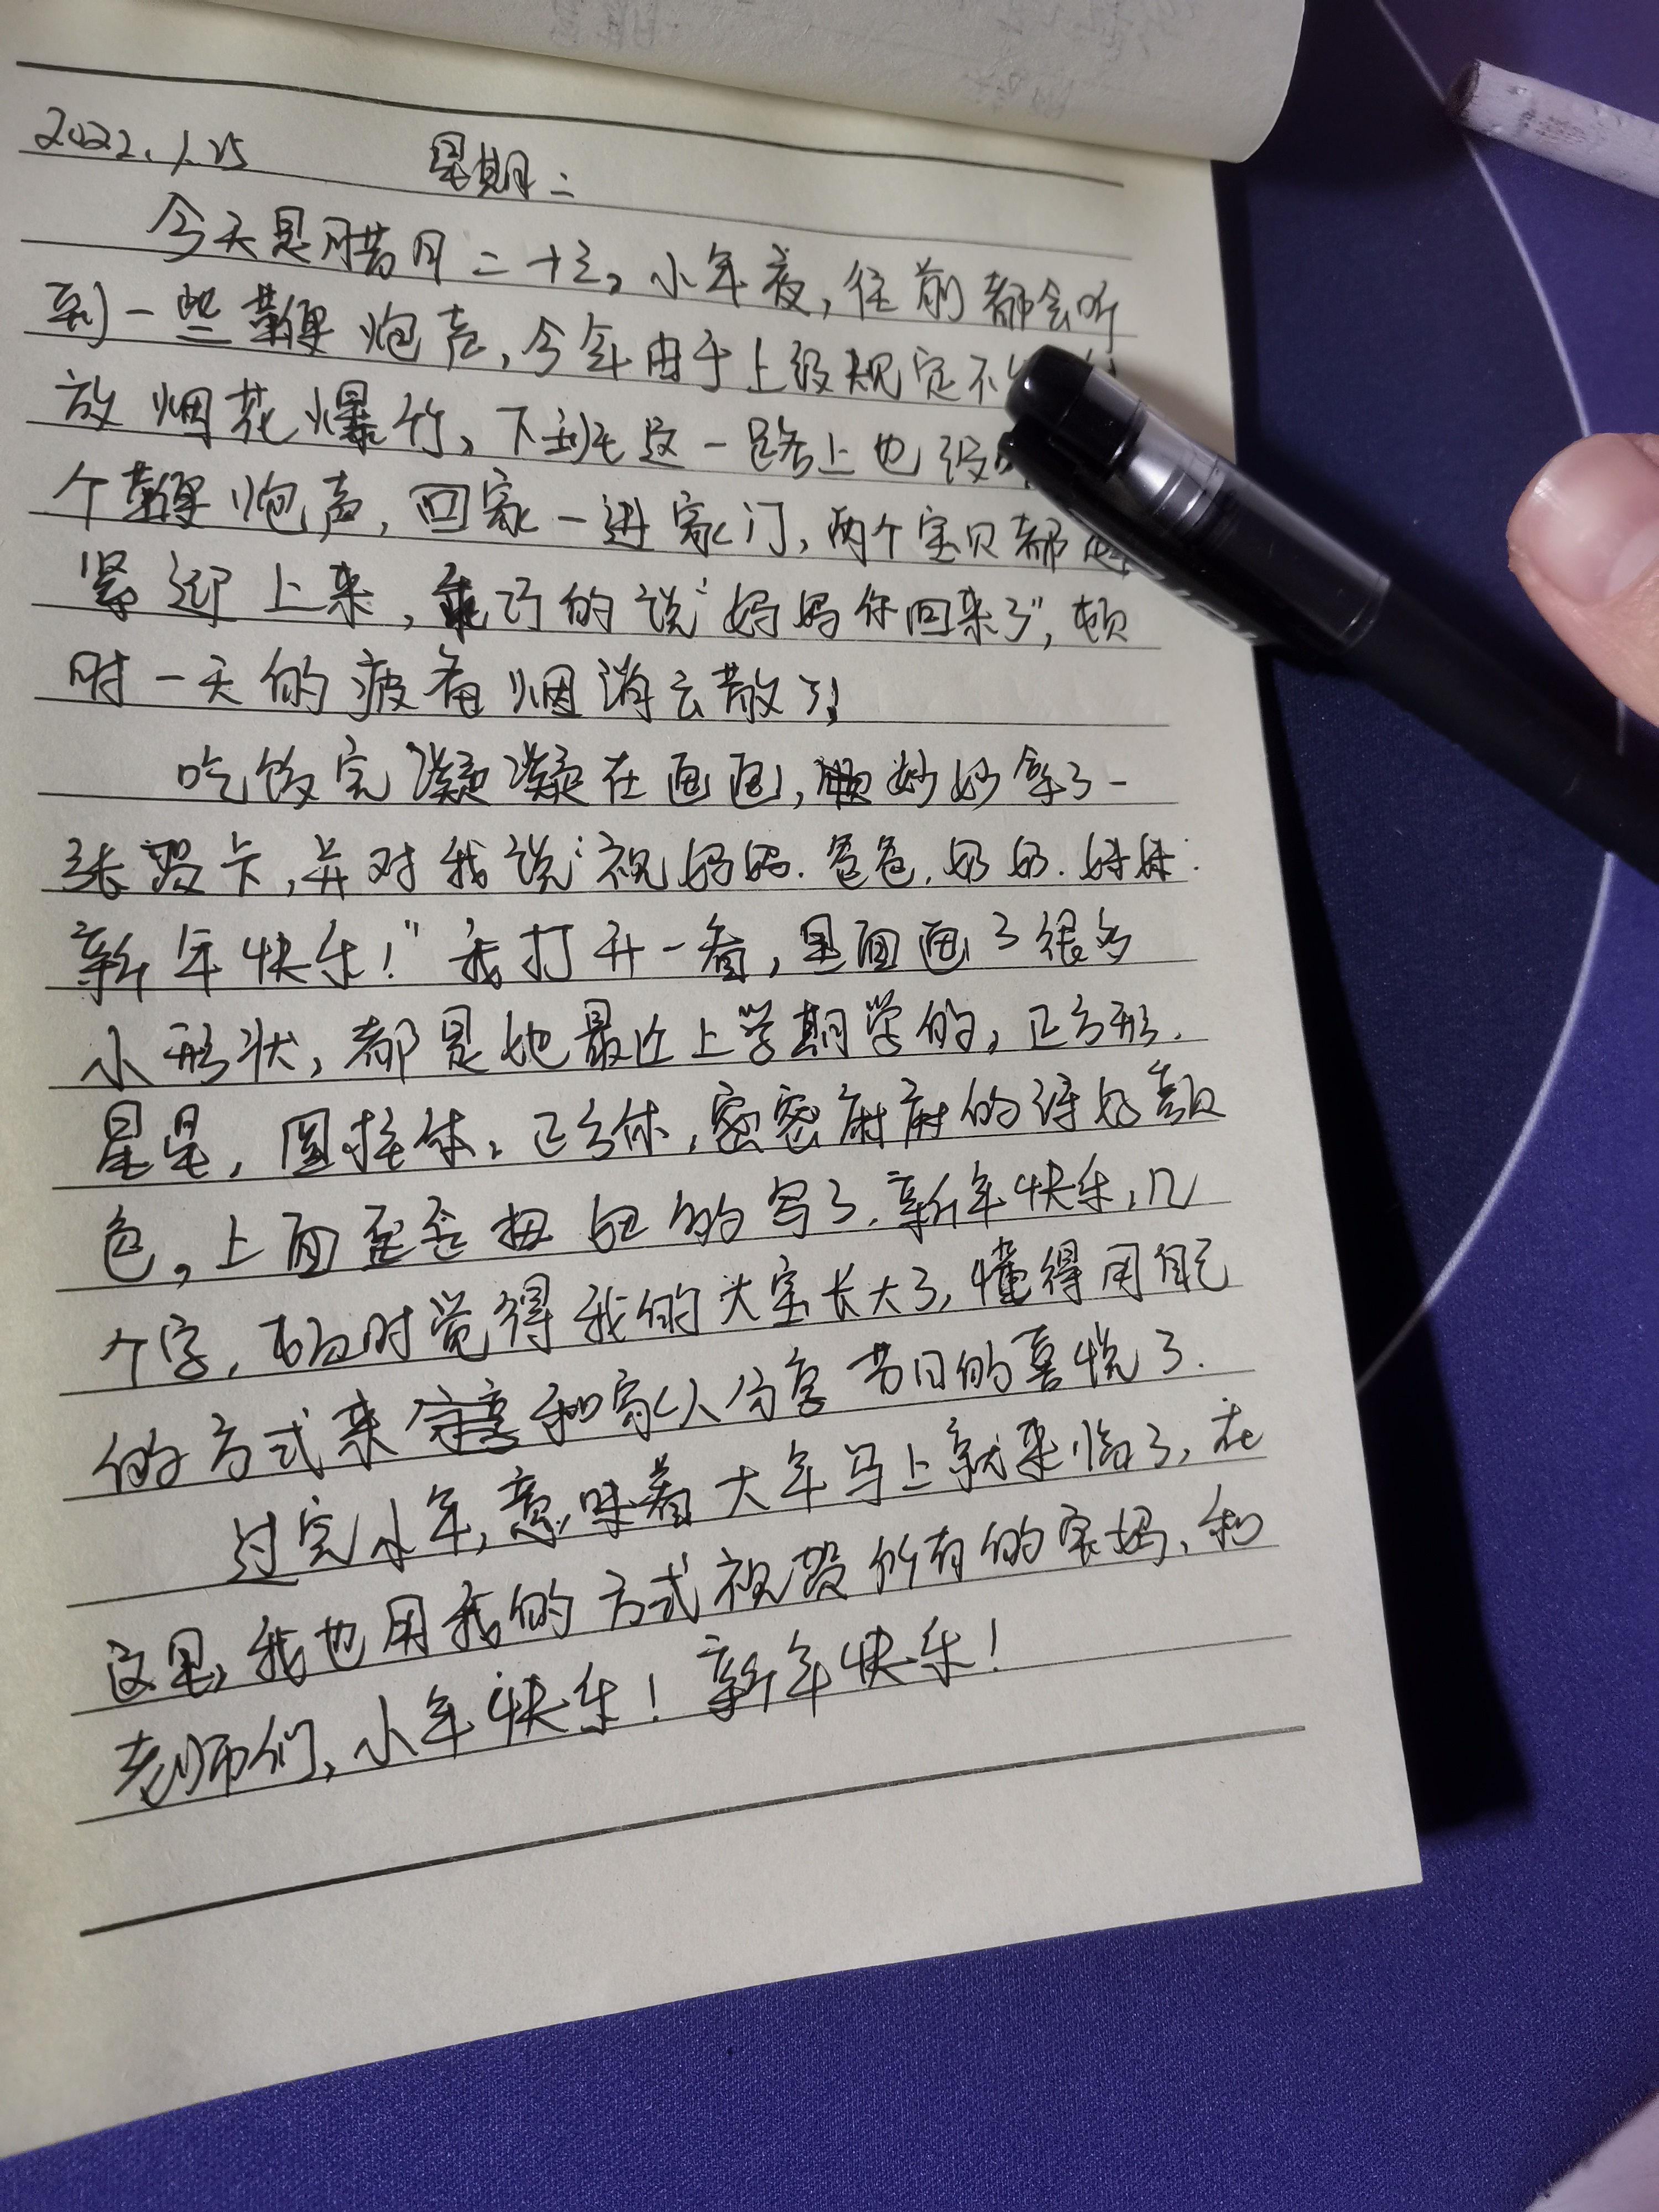 2022.1.25 星期二
今天是腊月二十三，小年夜，往前都会听
到一些鞭炮声，今年由于上级规定不
放烟花爆竹，下班这一路上也没
个鞭炮声，回家一进家门，两个宝贝都
紧迎上来，乖巧的说“妈妈你回来了”，顿
时一天的疲惫烟消云散了！
吃饭完凝凝在画画，妙妙拿了一
张贺卡，并对我说“祝妈妈．爸爸．奶奶．妹妹：
新年快乐！”我打开一看，里面画了很多
小形状，都是她最近上学期学的，正方形．
星星，圆柱体，正方体，密密麻麻的许多颜
色，上面歪歪扭扭的写了．新年快乐，几
个字，顿时觉得我的大宝长大了，懂得用自己
的方式来和家人分享节日的喜悦了．
过完小年，意味着大年马上就来临了，在
这里，我也用我的方式祝贺所有的宝妈、和
老师们，小年快乐！新年快乐！